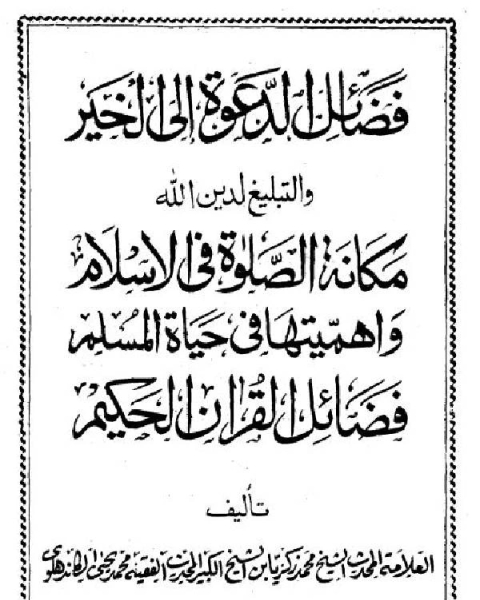 فَضَائِل الدَّعوَة إلى الخَير
والتبليغ لدين الله
مَكانَة الصَّلوٰة في الاسْلَام
وَاهمّيتهَا في حَيَاة المُسْلم
فَضَائِل القُرانِ الحَكيم
تأليف
العلامة المحدث الشيخ محمد زكريا بن الشيخ الكبير المحدث الفقيه محمد يحيى الكاندهلوي